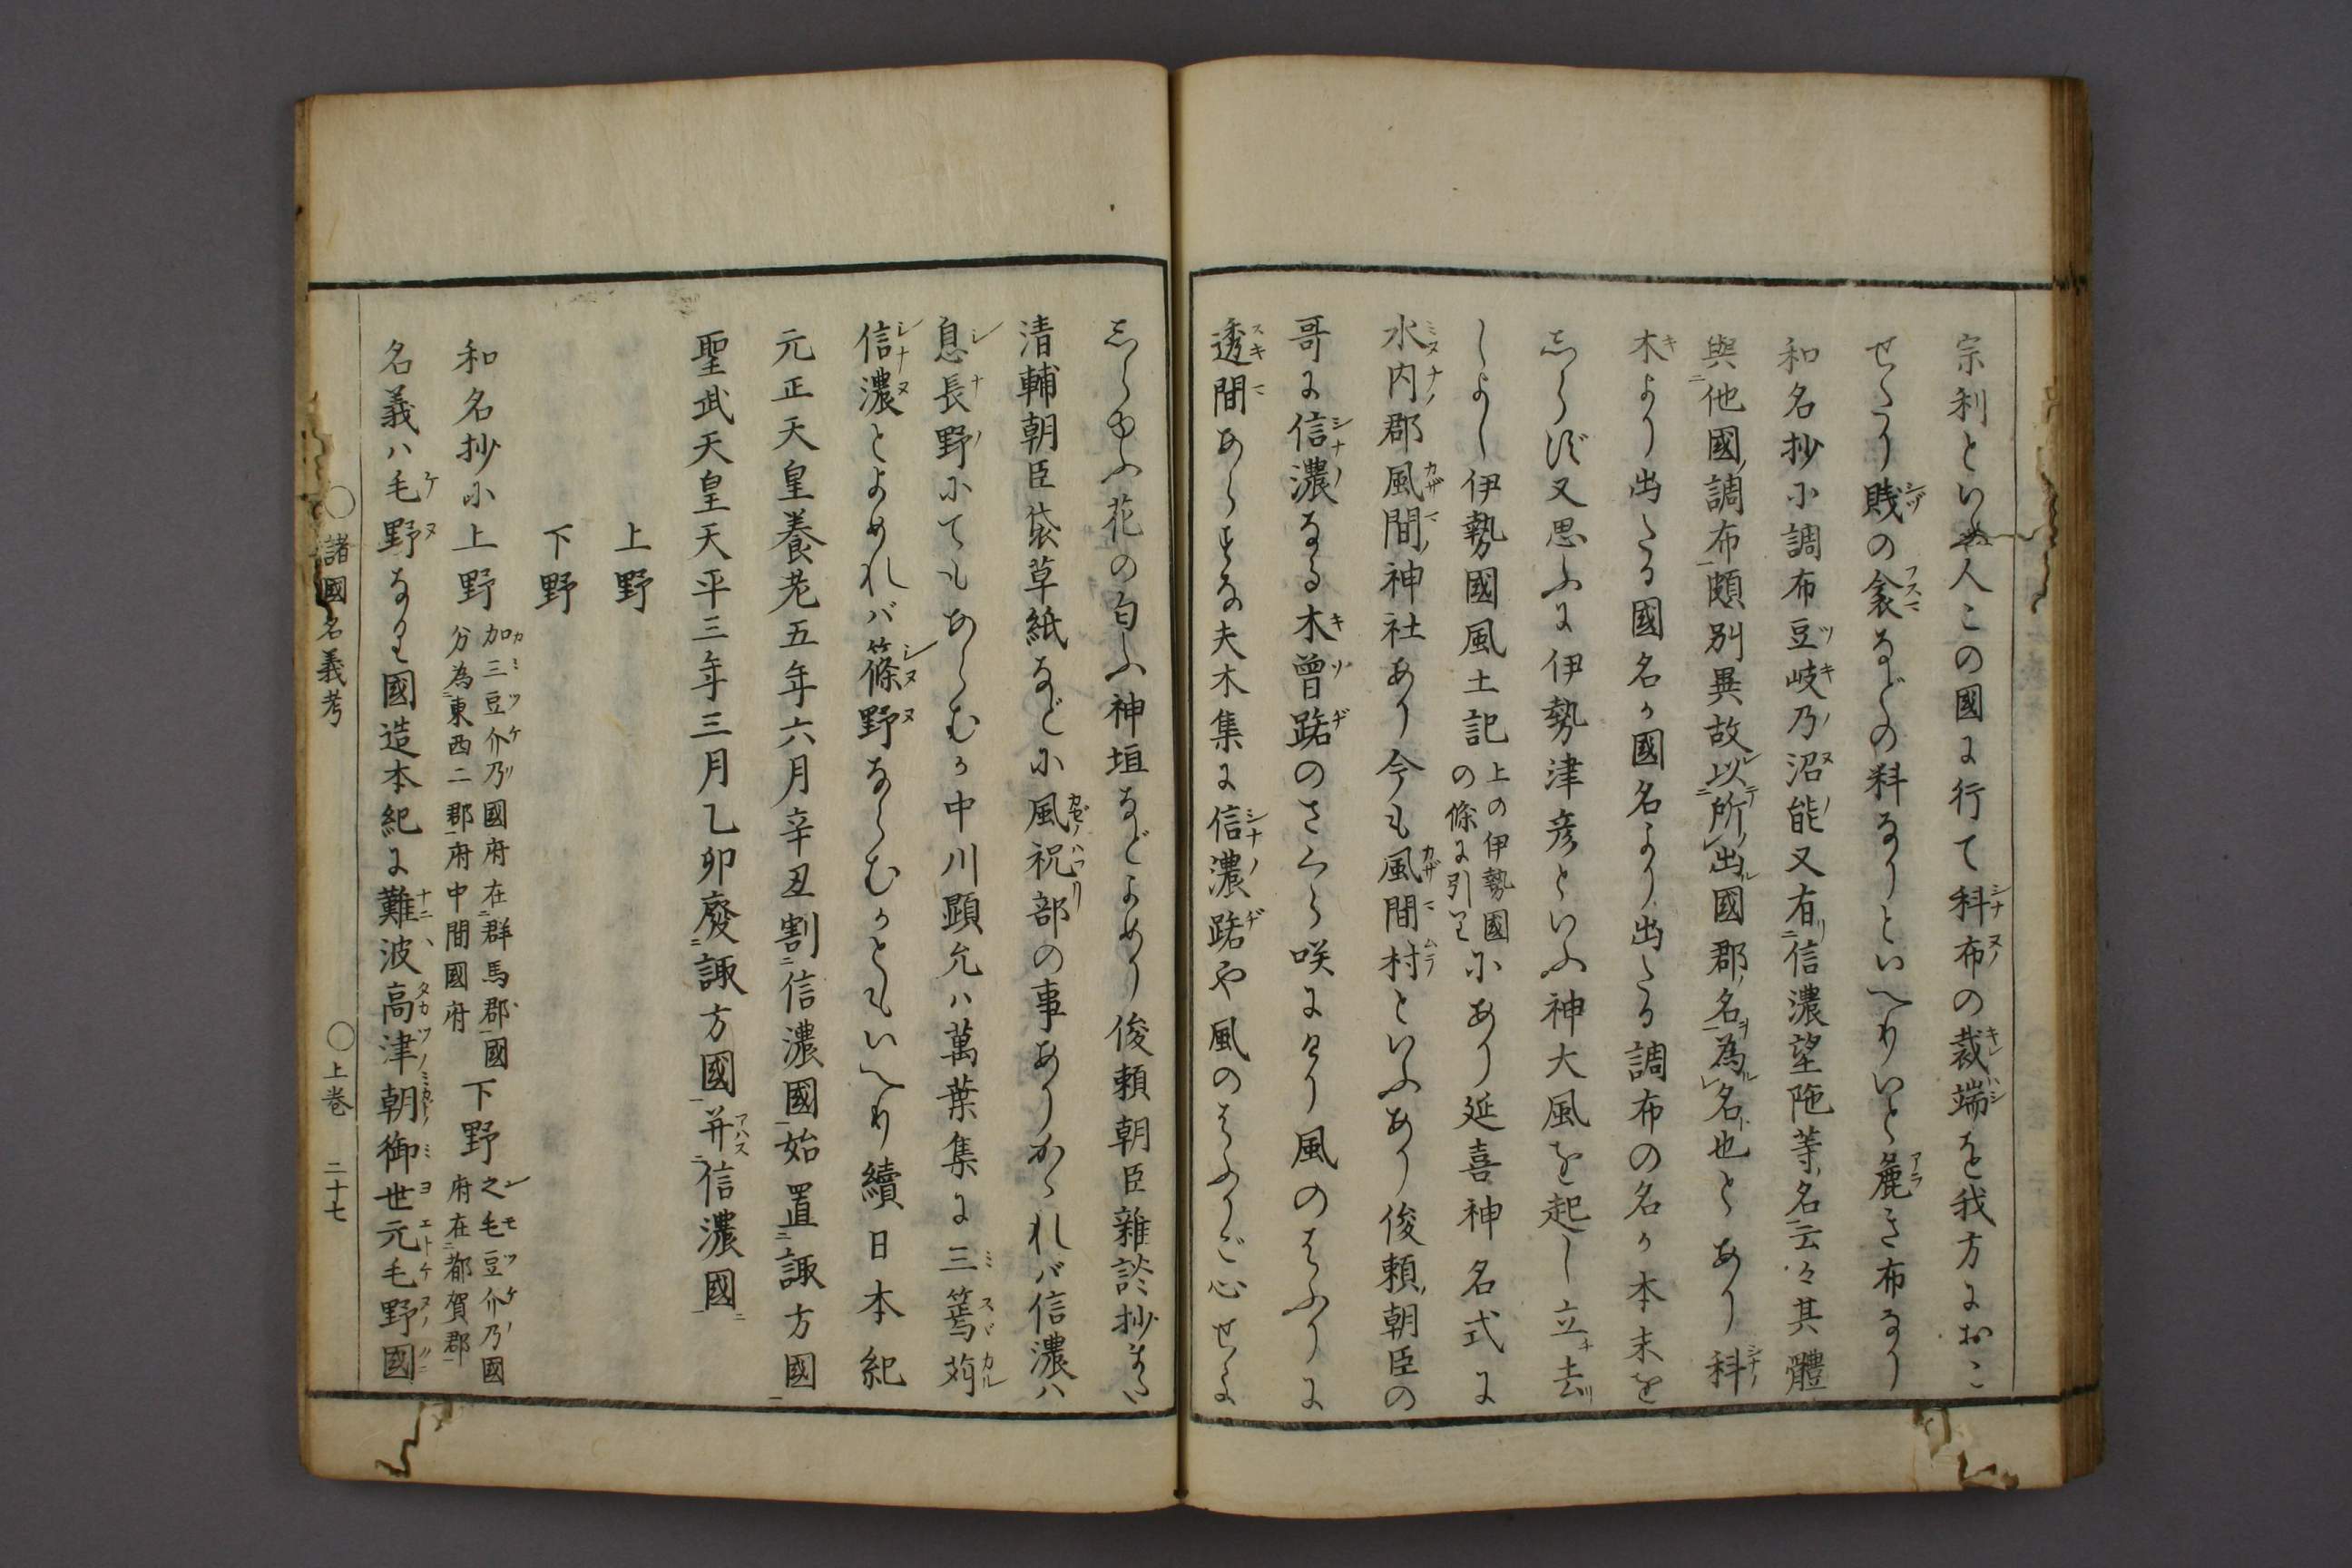 宗利といふ人この國に行て科布の裁端を我方におこ
せたり賤の衾などの料なりといへりいと麁き布なり
和名抄小調布豆岐乃沼能又有信濃望陁等名云々其體
與他國調布頗別異故以所出國郡名為名也とあり科
木より出たる國名か國名より出たる調布の名か本末を
しらず又思ふに伊勢津彦といふ神大風を起し立去
しよし伊勢國風土記上の伊勢國の條に引り小あり延喜神名式に
水内郡風間神社あり今も風間村といふあり俊頼朝臣の
哥に信濃なる木曽路のさくら咲にけり風のはふりに
透間あらすな夫木集に信濃路や風のはふりご心せよ
しらゆふ花の匂ふ神垣などよめり俊頼朝臣雑談抄また
清輔朝臣袋草紙など小風祝部の事ありかゝれバ信濃ハ
息長野小てもあらむか中川顕允ハ萬葉集に三篶苅
信濃とよめれバ篠野ならむかともいへり續日本紀
元正天皇養老五年六月辛丑割信濃國始置諏方國
聖武天皇天平三年三月乙卯廢諏方國并信濃國
上野
下野
和名抄小上野加三豆介乃國府在群馬郡國分為東西二郡府中間國府下野之毛豆介乃國府在都賀郡
名義ハ毛野なり國造本紀に難波高津朝御世元毛野國
○諸國名義考 ○上巻 二十七